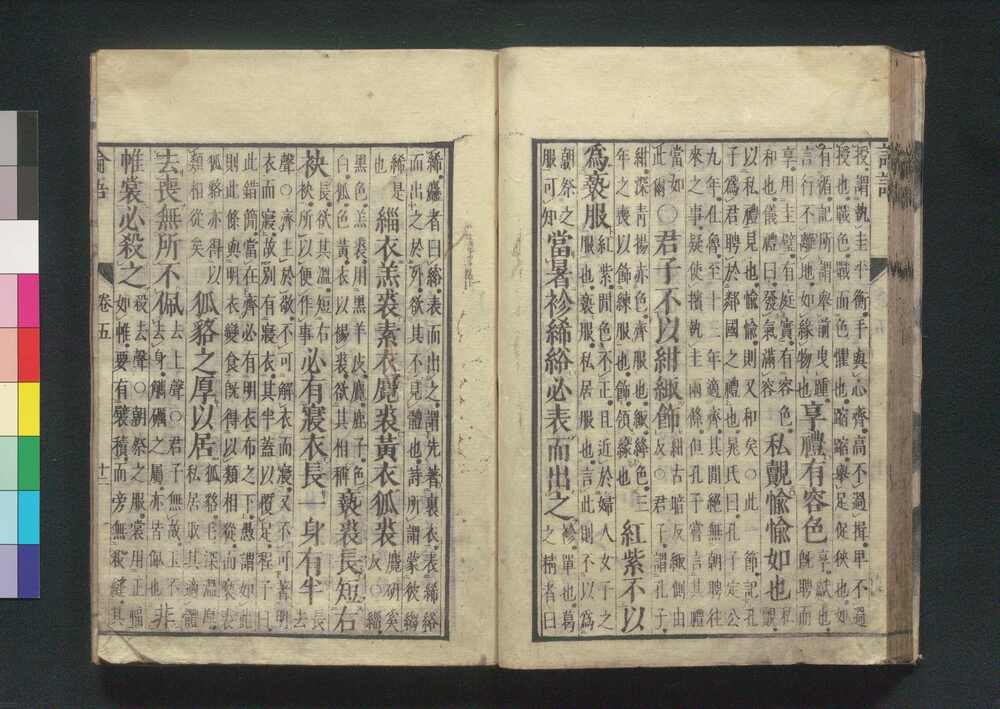 論語
授謂執圭平衡手與心齊高不過揖卑不過
授也戰色戰而色懼也蹜蹜舉足促狹也如
有循記所謂舉前曳踵
言行不離地如緣物也
享禮有容色
享獻也
既聘而
享用圭璧有庭實有容色
和也儀禮曰發氣滿容
私覿愉愉如也
私
覿
以私禮見也愉愉則又和矣○此一節記孔
子為君聘於鄰國之禮也晁氏曰孔子定公
九年仕魯至十三年適齊其間絕無朝聘往
來之事疑使擯執圭兩條但孔子嘗言其禮
當如
此爾
○君子不以紺緅飾
紺古暗反緅側由
反○君子謂孔子
紺深青揚赤色齊服也緅絳色三
年之喪以飾練服也飾領緣也
紅紫不以
為褻服
紅紫閒色不正且近於婦人女子之
服也褻服私居服也言此則不以為
朝祭之
服可知
當暑袗絺綌必表而出之
袗單也葛
之精者曰
絺麤者曰綌表而出之謂先著裏衣表絺綌
而出之於外欲其不見體也詩所謂蒙彼縐
絺是
也
緇衣羔裘素衣麑裘黃衣狐裘
麑研奚
反○緇
黑色羔裘用黑羊皮麑鹿子色
白狐色黃衣以裼裘欲其相稱
褻裘長短右
袂
長欲其溫短右
袂所以便作事
必有寢衣長一身有半
長
去
聲○齊主於敬不可解衣而寢又不可著明
衣而寢故別有寢衣其半蓋以覆足程子曰
此錯簡當在齊必有明衣布之下愚謂如此
則此條與明衣變食既得以類相從而褻裘
狐貉亦得以
類相從矣
狐貉之厚以居
狐貉毛深溫厚
私居取其適體
去喪無所不佩
去上聲○君子無故玉不
去身觿礪之屬亦皆佩也
非
帷裳必殺之
殺去聲○朝祭之服裳用正幅
如帷要有襞積而旁無殺縫其
論語
卷五
十二